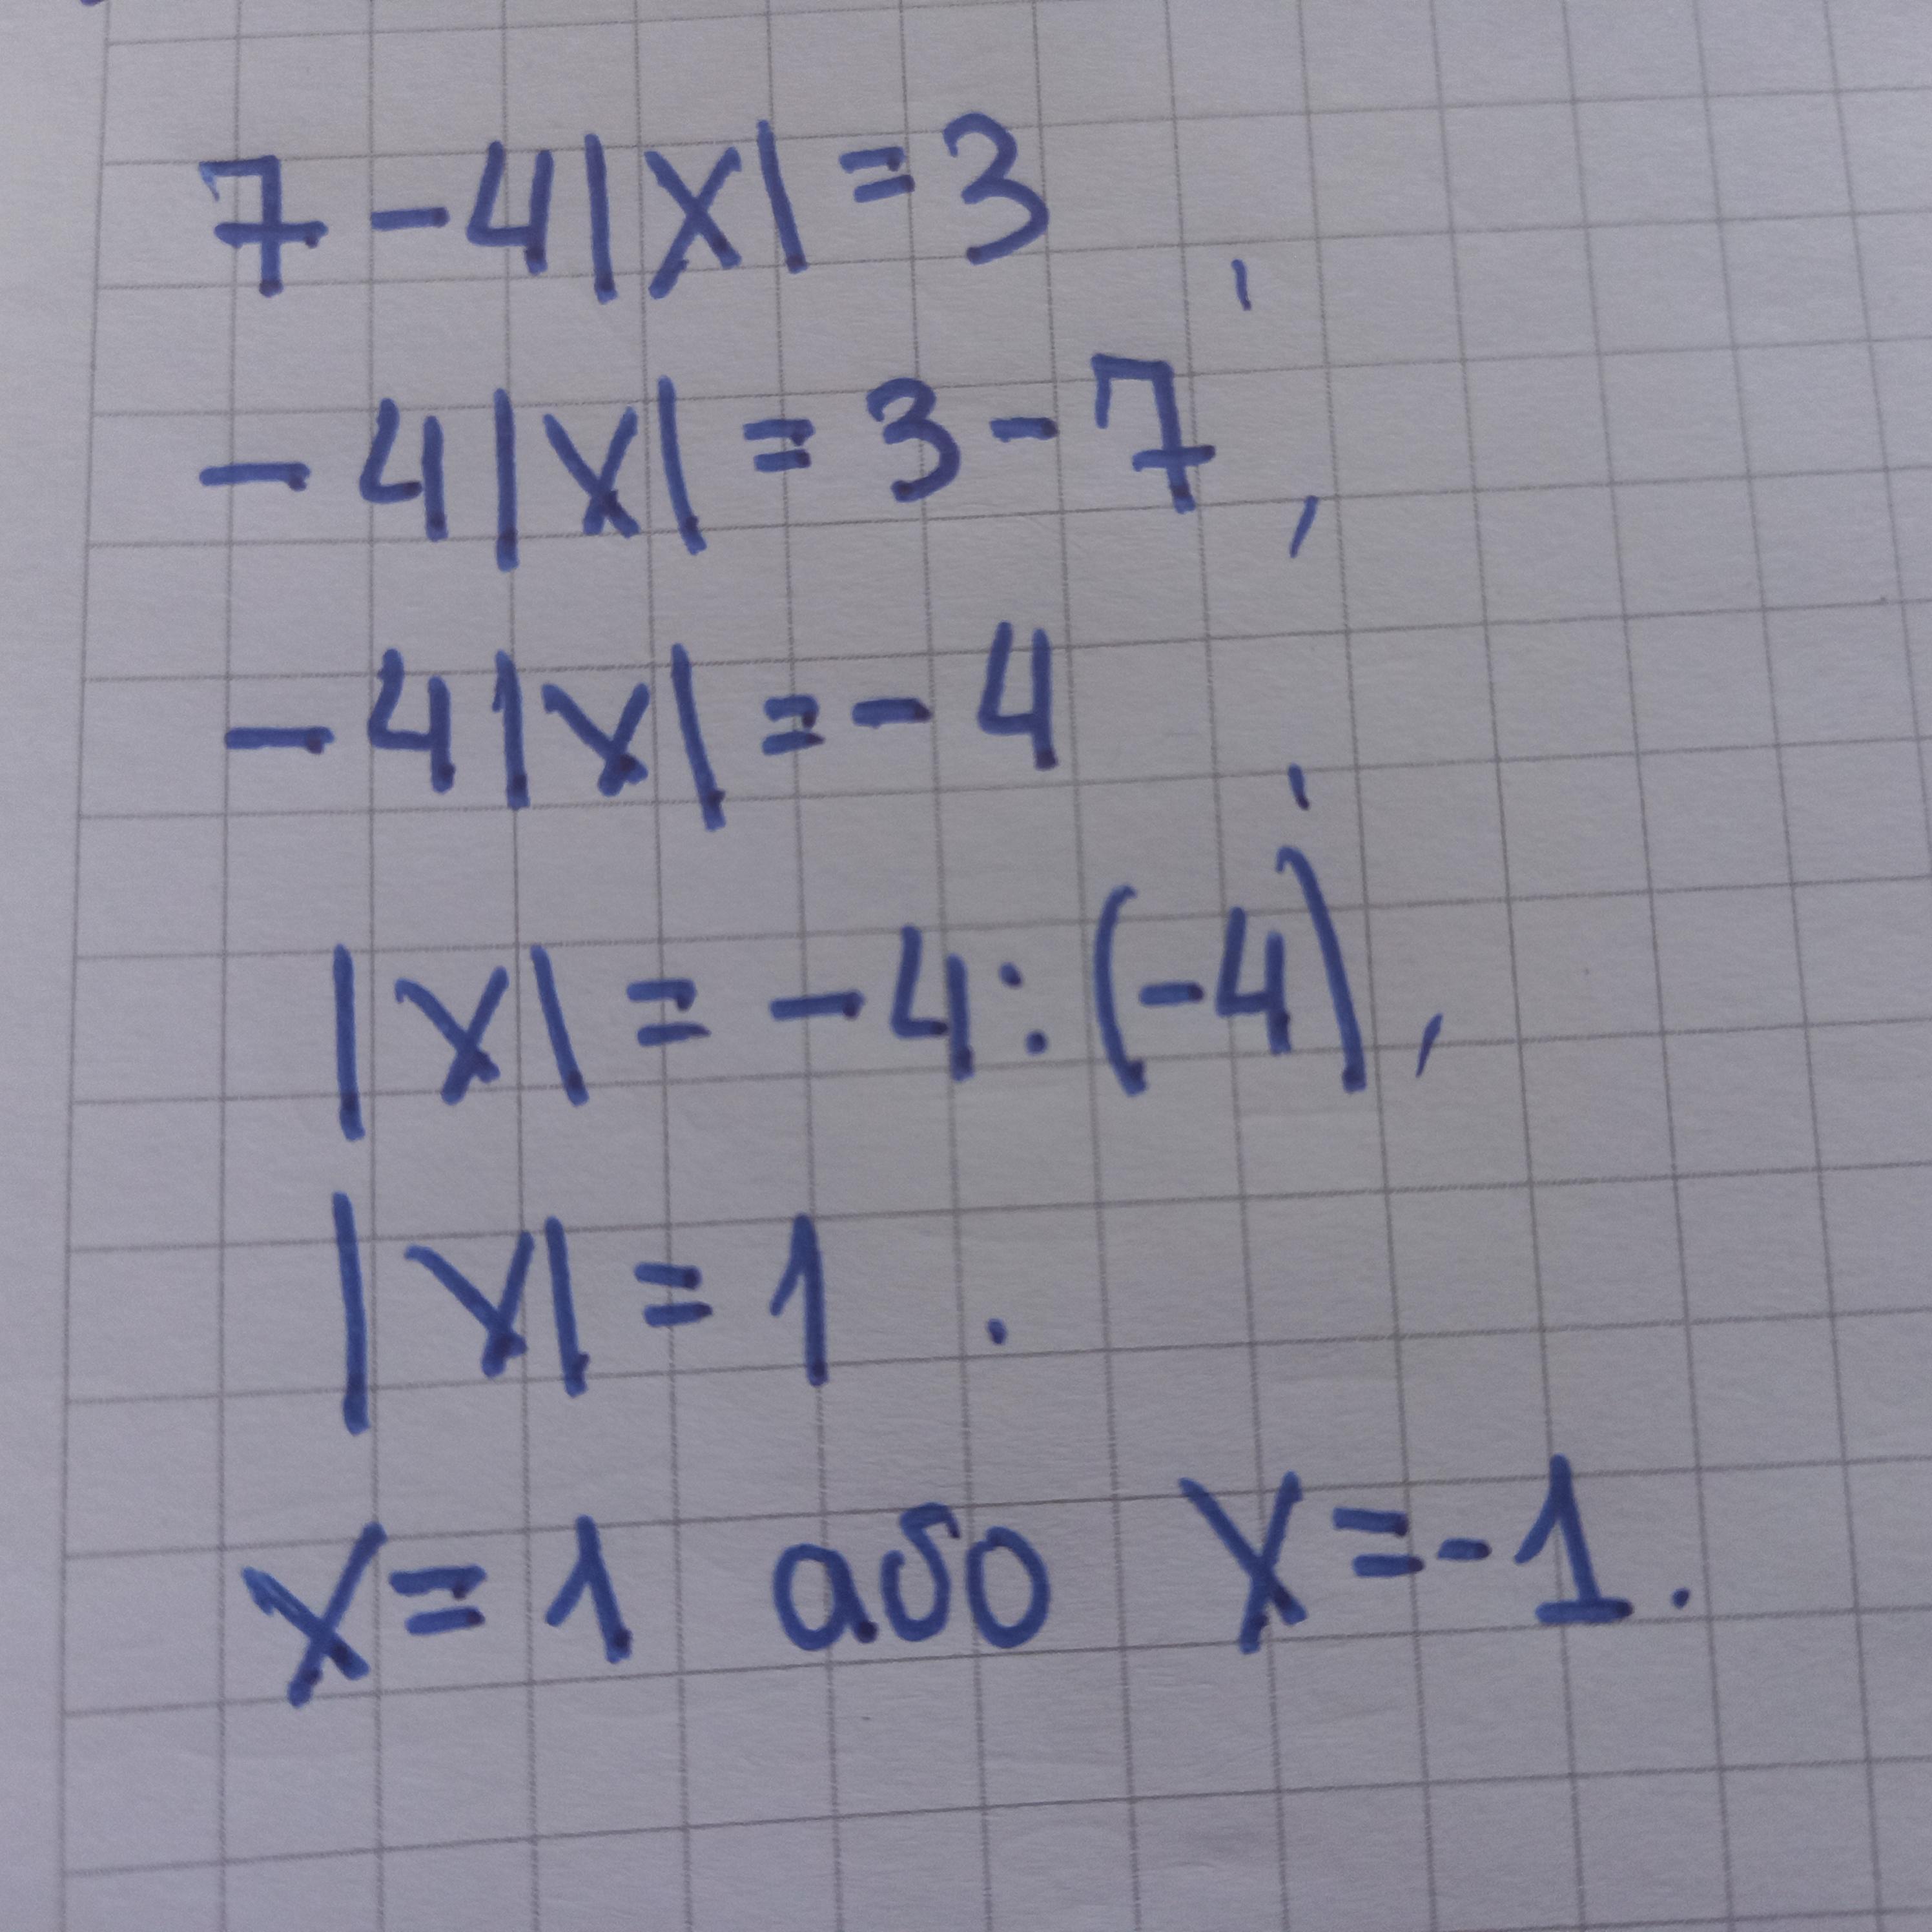 7 - 4|x| = 3,
- 4|x| = 3 - 7,
- 4|x| = - 4,
|x| = - 4 : (-4),
|x| = 1.
x = 1 або x = - 1.